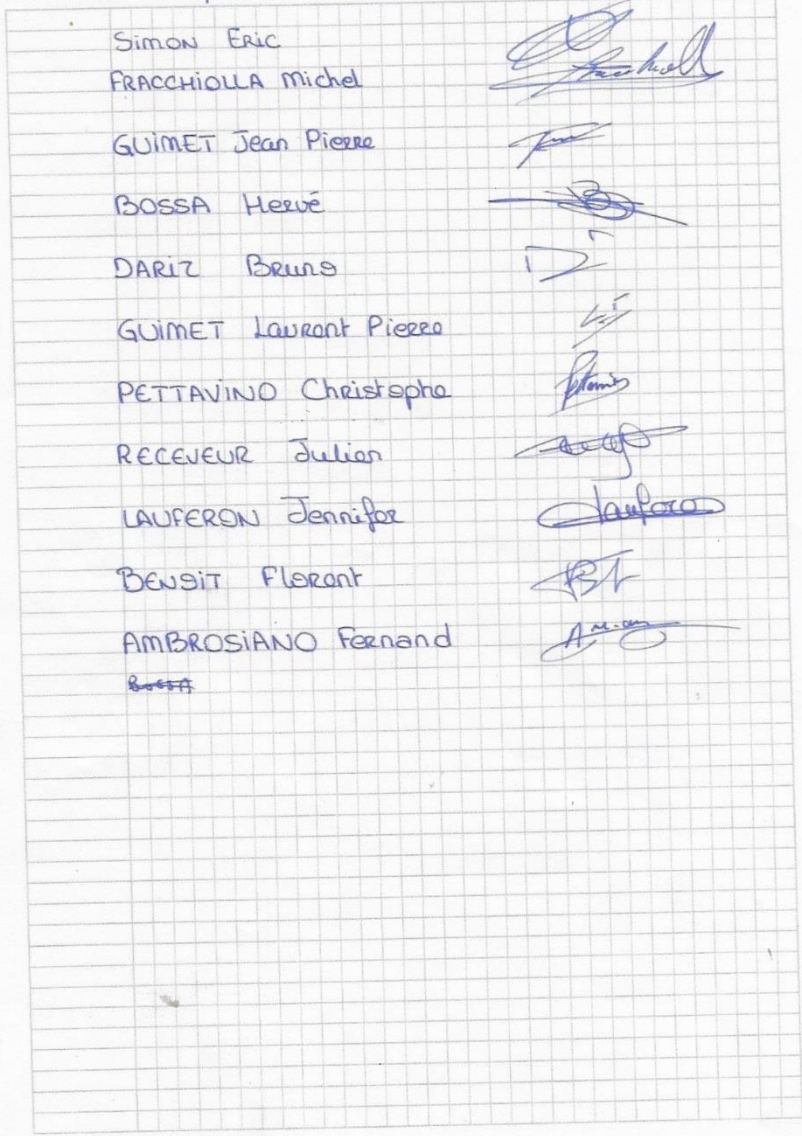 SIMON ERIC
FRACCHIOLLA Michel
GUIMET Jean Pierre
BOSSA Hervé
DARIZ Bruno
GUIMET Laurent Pierre
PETTAVINO Christophe
RECEVEUR Julien
LAUFERON Jennifer
BENOIT Florent
AMBROSIANO Fernand
BOSSA